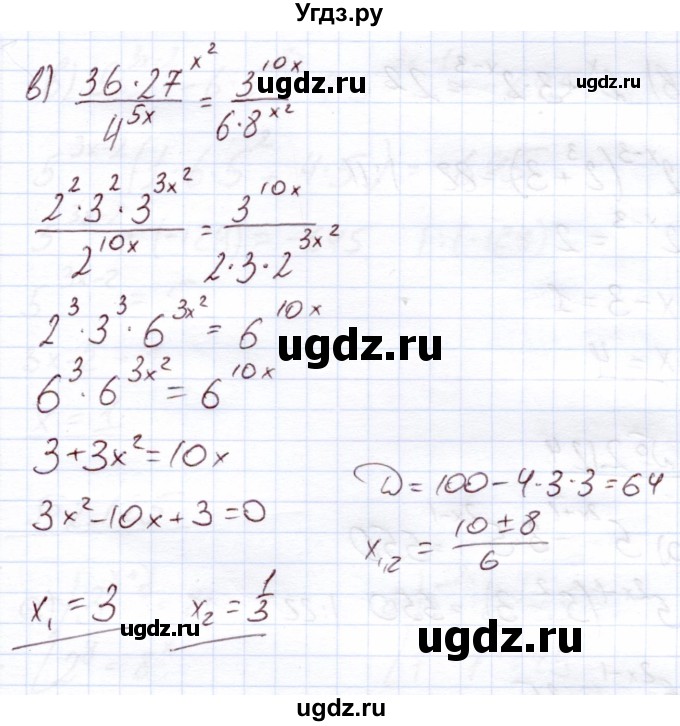 Угдз.ру
в) 36·27^x² / 4^5x = 3^10x / 6·8^x²
ugdz.ru
ugdz.ru
2²·3²·3^3x² / 2^10x = 3^10x / 2·3·2^3x²
2³·3³·6^3x² = 6^10x
ugdz.ru
6³·6^3x² = 6^10x
3+3x²=10x
3x²-10x+3=0
D=100-4·3·3=64
x₁,₂ = 10±8 / 6
x₁=3 x₂=1/3
ugdz.ru
ugdz.ru
ugdz.ru
ugdz.ru